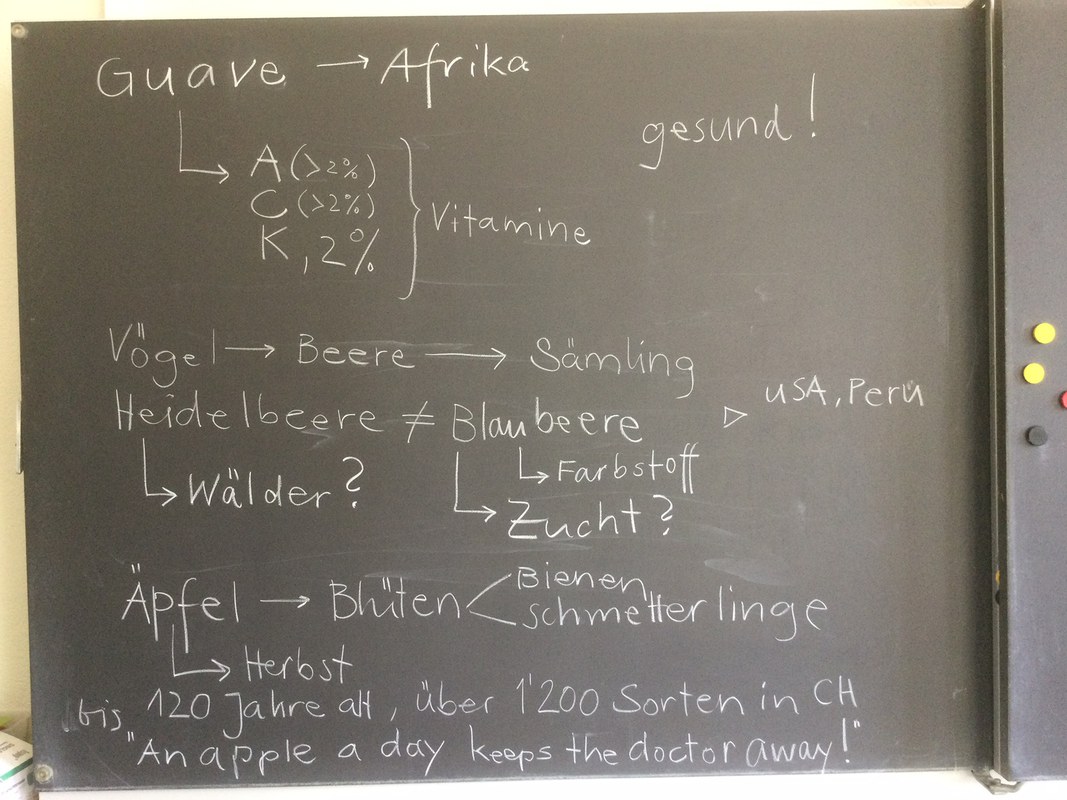 Guave → Afrika
gesund!
↳ A (>2%)
C (>2%)
K, 2%
} Vitamine
Vögel → Beere → Sämling
Heidelbeere ≠ Blaubeere ▷ USA, Peru
↳ Wälder?
↳ Farbstoff
↳ Zucht?
Äpfel → Blüten < Bienen
Schmetterlinge
↳ Herbst
bis 120 Jahre alt, über 1'200 Sorten in CH
"An apple a day keeps the doctor away!"